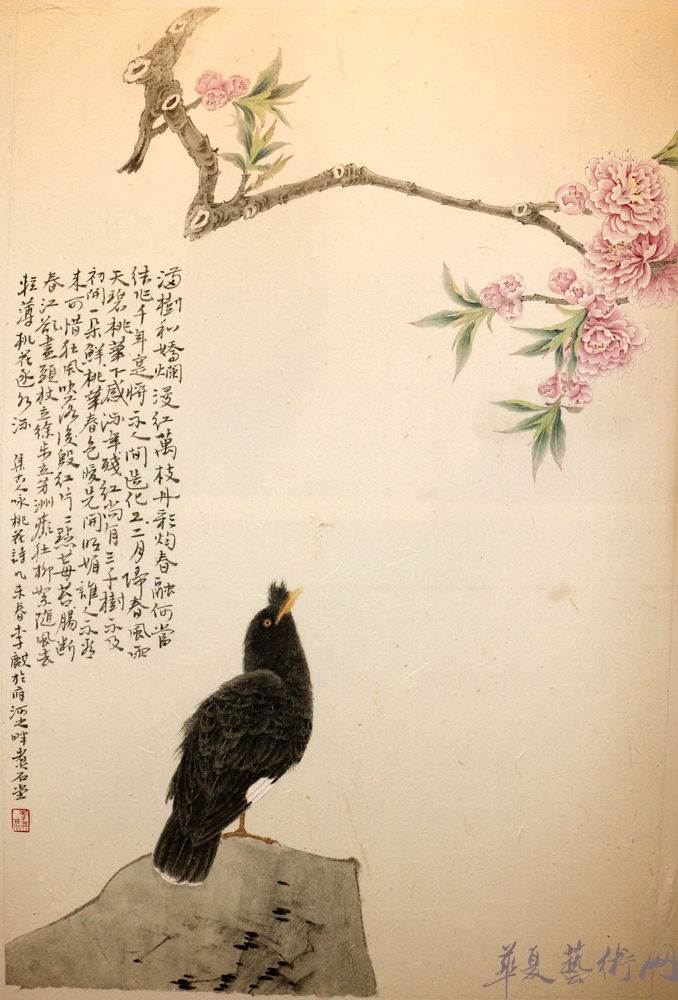 滿樹和嬌爛漫紅萬枝丹彩灼春融何當
結作千年寔將示人間造化工二月歸春風雨
天碧桃華下感流年殘紅尚有三千樹不及
初開一朵鮮桃華春色暖先開明媚誰人不看
來可惜狂風吹落後殷紅片片點莓苔腸斷
春江欲盡頭杖立徐步立芳洲癲狂柳絮隨風去
輕薄桃花逐水流 集古人咏桃花詩乙未春李於府河之畔煮石堂
華夏藝術网